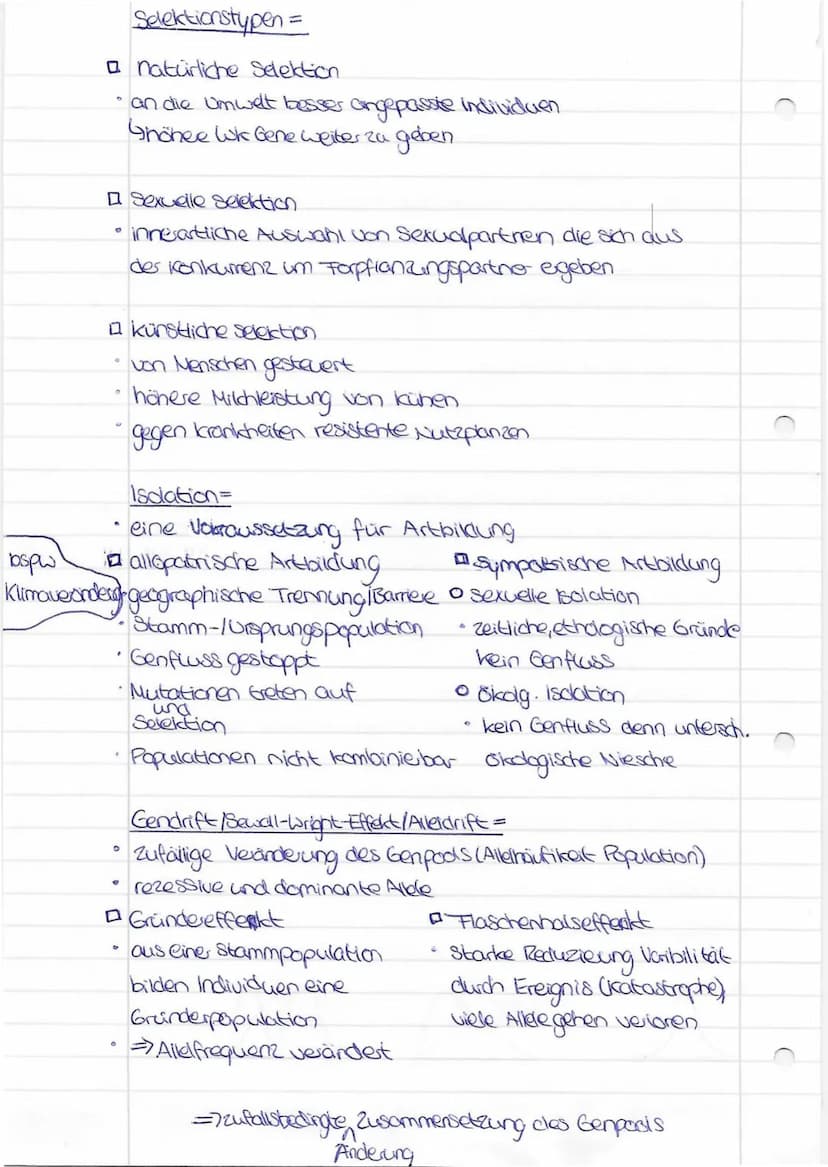 Selektionstypen =
□ natürliche Selektion
• an die Umwelt besser angepasste Individuen
↳ höhee Wk Gene weiter zu geben
□ Sexuelle Selektion
• innerartliche Auswahl von Sexualpartnern die sich aus
der Konkurrenz um Forpflanzungspartner ergeben
□ künstliche Selektion
• von Menschen gesteuert
• höhere Milchleistung von Kühen
• gegen Krankheiten resistente Nutzplanzen
Isolation =
• eine Voraussetzung für Artbildung
□ allopatrische Artbildung
bspw Klimaveränderg
• geographische Trennung/Barriere
• Stamm-/Ursprungspopulation
• Genfluss gestoppt
• Mutationen treten auf
und
Selektion
• Populationen nicht kombinierbar
□ Sympatrische Artbildung
○ Sexuelle Isolation
• zeitliche, ethologische Gründe
kein Genfluss
○ Ökolg. Isolation
• kein Genfluss denn untersch.
ökologische Niesche
Gendrift/Sewall-Wright-Effekt/Alleldrift =
• zufällige Veränderung des Genpools (Allelhäufikeit Population)
• rezessive und dominante Allele
□ Gründereffekt
• aus einer Stammpopulation
bilden Individuen eine
Gründerpopulation
• ⇒ Allelfrequenz verändert
□ Flaschenhalseffekt
• Starke Reduzierung Varibilität
durch Ereignis (Katastrophe),
viele Allele gehen verloren
⇒ zufallsbedingte Änderung Zusammensetzung des Genpools